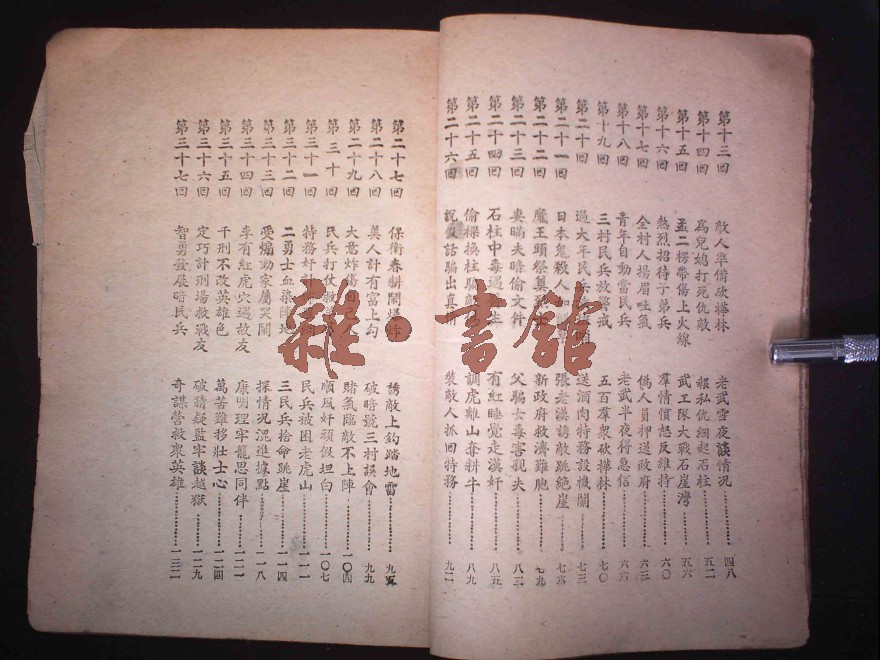 第十三回 敵人準備砍樺林 老武雪夜談情况 四八
第十四回 爲兒媳打死仇敵 報私仇細起石柱 五二
第十五回 孟二楞帶傷上火線 武工隊大戰石崖灣 五六
第十六回 熱烈招待子弟兵 羣情憤怒反維持 六〇
第十七回 全村人揚眉吐氣 僞人員押送政府 六三
第十八回 青年自動當民兵 老武半夜得急信 六六
第十九回 三村民兵放警戒 五百羣衆砍樺林 七〇
第二十回 過大年民兵 送酒肉特務設機關 七三
第二十一回 日本鬼殺人 張老漢誘敵跳絶崖 七六
第二十二回 魔王頭祭奠 新政府救濟難胞 七九
第二十三回 妻瞞夫暗偷文件 父騙女毒害親夫 八三
第二十四回 石柱中毒 有紅睡覺走漢奸 八五
第二十五回 偷樑換柱騙 調虎離山春耕牛 八九
第二十六回 說假話騙出真 裝敵人抓回特務 九一
第二十七回 保衛春耕鬧爆炸 誘敵上鈎踏地雷 九五
第二十八回 美人計有富上勾 破暗號三村誤會 九九
第二十九回 大意炸傷 賭氣臨敵不上陣 一〇四
第三十回 民兵打仗救 順風奸頑假坦白 一〇七
第三十一回 特務奸計 民兵被困老虎山 一一一
第三十二回 二勇士血染陣地 三民兵捨命跳崖 一一四
第三十三回 受煽動家屬哭鬧 探情况混進據點 一一八
第三十四回 李有紅虎穴遇故友 康明理牢籠思同伴 一二一
第三十五回 千刑不改英雄色 萬苦難移壯士心 一二四
第三十六回 定巧計刑場救戰友 破猜疑監牢談越獄 一二九
第三十七回 智勇發展暗民兵 奇謀營救衆英雄 一三二
雜·書館